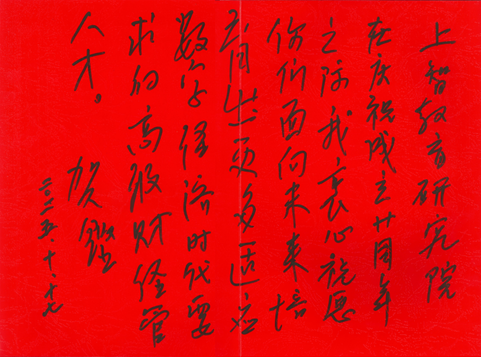 上智教育研究院
在庆祝成立廿周年
之际我衷心祝愿
你们面向未来培
育出更多适应
数字经济时代要
求的高级财经管
人才。
贺铿
二〇二五.十.十七